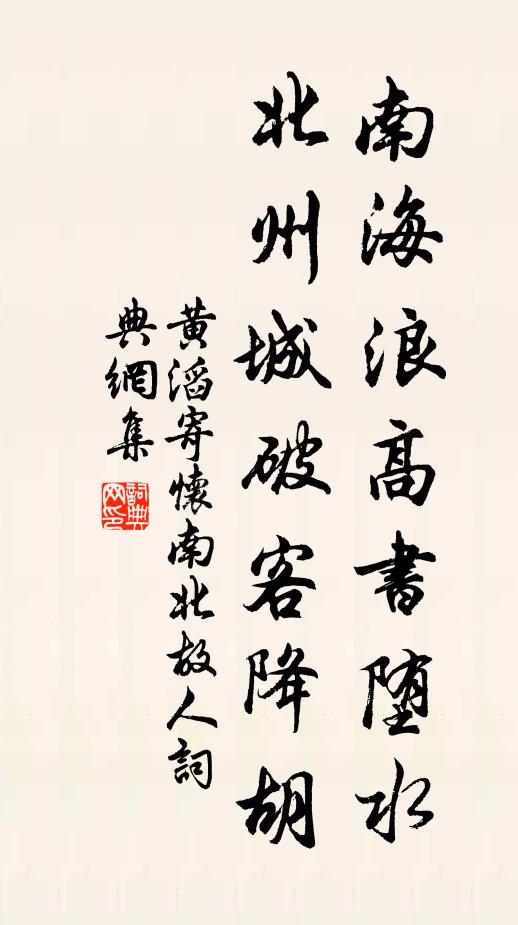 南海浪高書堕水
北州城破客降胡
黃滔寄懷南北故人詞
典網集
詞典
网印